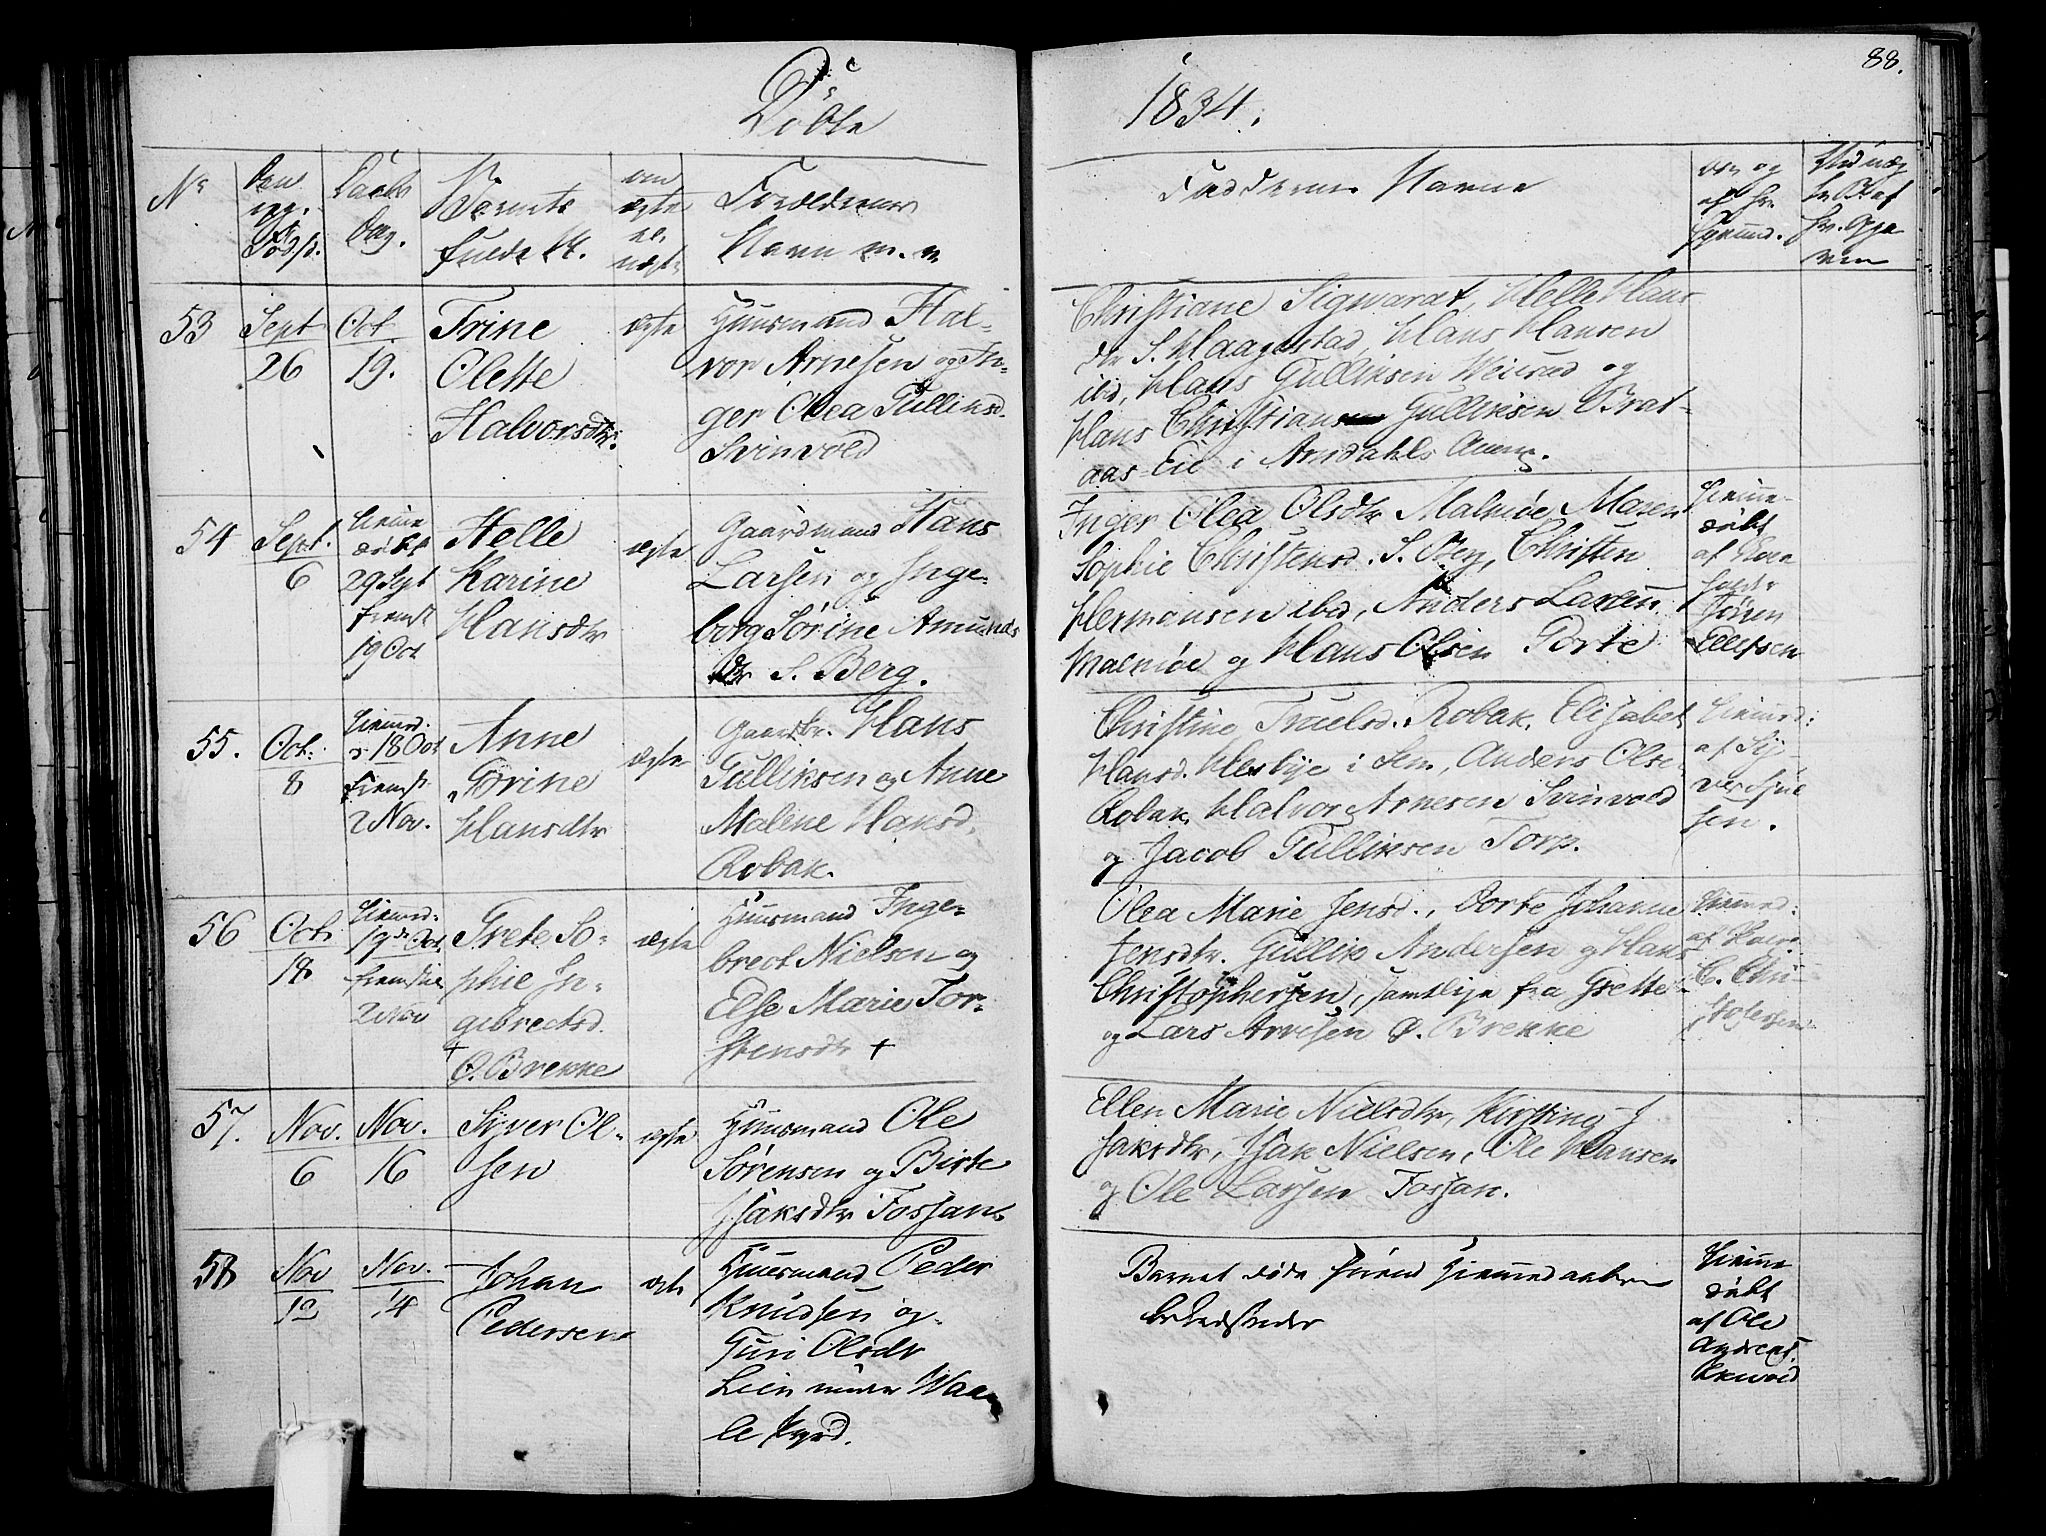 Døbte
1834.
88.
No
Daabs
Dag.
Barnets
fulde N.
om
ægte
el.
uægte
Forældrenes
Navn m. m.
Faddernes Navne
53
Sept
26
Oct.
19.
Trine
Olette
Halvorsdtr.
ægte
Huusmand Hal-
vor Arnesen og In-
ger Olea Gulliksd.
Svinvold
Christiane Sigwardt, Helle Hans
dtr S. Haagestad, Hans Hansen
ibd, Hans Gulliksen Weirud og
Hans Christian Gulliksen Brat-
aas Eie i Arndahls Annex.
54
Sept.
6
Hieme
døbt
29 Sept
fremst
19 Oct
Helle
Karine
Hansdtr
ægte
Gaardmand Hans
Larsen og Inge-
borg Sørine Amunds
dtr S. Berg.
Inger Olea Olsdtr Malmøe, Maren
Sophie Christensd. S. Berg, Christen
Hermansen ibid, Anders Larsen
Malmøe og Hans Olsen Porte
Hieme-
døbt
af
Søren
Ellefsen
55.
Oct.
8
Hiemd.
d. 18 Oct
fremst.
2 Nov.
Anne
Sørine
Hansdtr
ægte
Gaardbr. Hans
Gulliksen og Anne
Malene Hansd.
Robak.
Christine Truelsd. Robak, Elisabet
Hansd. Hesbye i Sem, Anders Olse
Robak, Halvor Arnesen Svinvold
og Jacob Gulliksen Torp.
Hiemd:
af Sy-
ver Siu
sen.
56
Oct.
18
Hiemd:
19de Oct.
fremstil
2 Nov
Grete So-
phie In-
gebrectsd.
+
Ø. Brekke
ægte
Huusmand Inge-
brect Nielsen og
Else Marie Tor-
stensdtr +
Olea Marie Jensd., Dorte Johanne
Jensdtr. Gullik Andersen og Hans
Christophersen, samtlige fra Grette-
og Lars Arvesen Ø. Brekke
Hiemd:
af
C. Chri-
stofersen
57.
Nov.
6
Nov.
16
Syver Ol-
sen
ægte
Huusmand Ole
Sørensen og Birte
Isaksdtr Fossan
Ellen Marie Nielsdtr, Kirstine I-
saksdtr, Isak Nielsen, Ole Hansen
og Ole Larsen Fossan.
58
Nov
12
Nov.
14
Johan
Pedersen
ægte
Huusmand Peder
Knudsen og
Guri Olsdr
Lien under Waa
le Prgd.
Barnet døde førend Hiemmedaaben
bekræftedes
Hieme
døbt
af Ole
Andreas